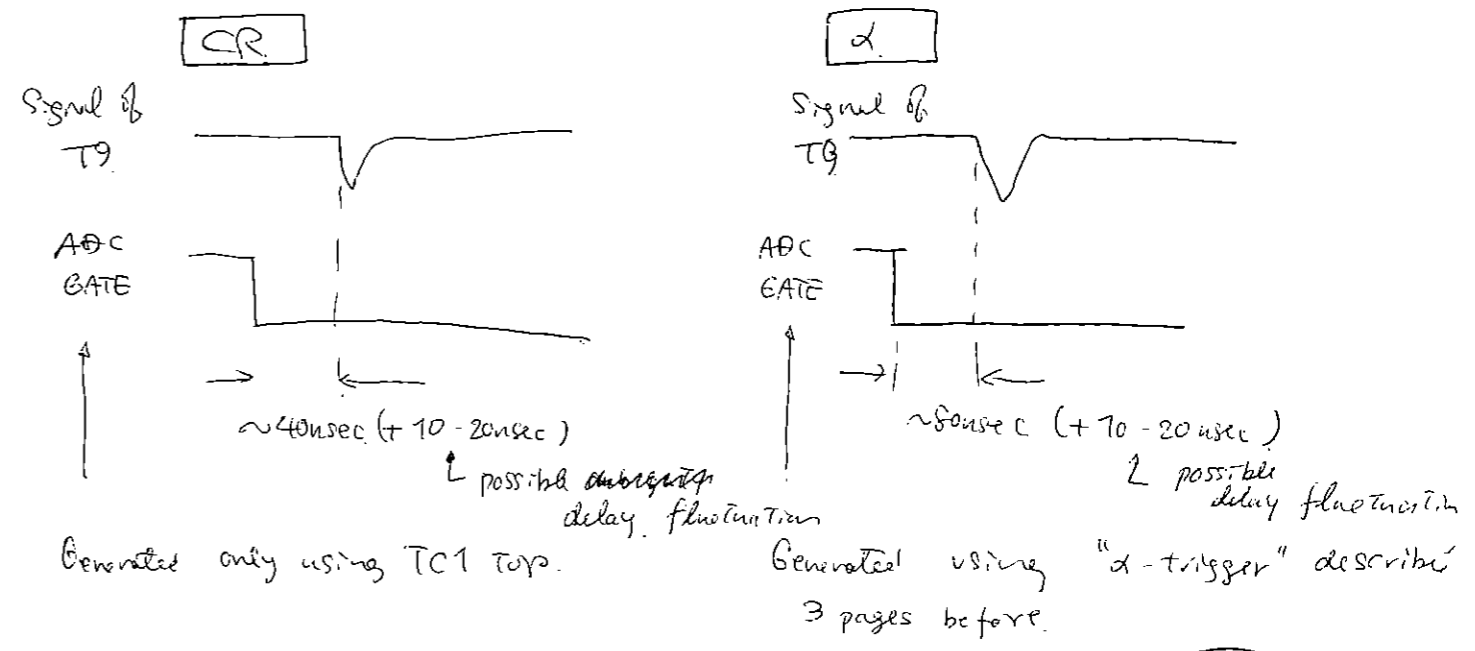 CR
Signal of
T9
ADC
GATE
~40nsec (+ 10 - 20nsec)
possible
delay fluctuation
Generated only using TC1 Top.
α
Signal of
T9
ADC
GATE
nsec (+ 10 - 20 nsec)
possible
delay fluctuation
Generated using "α-trigger" described
3 pages before.